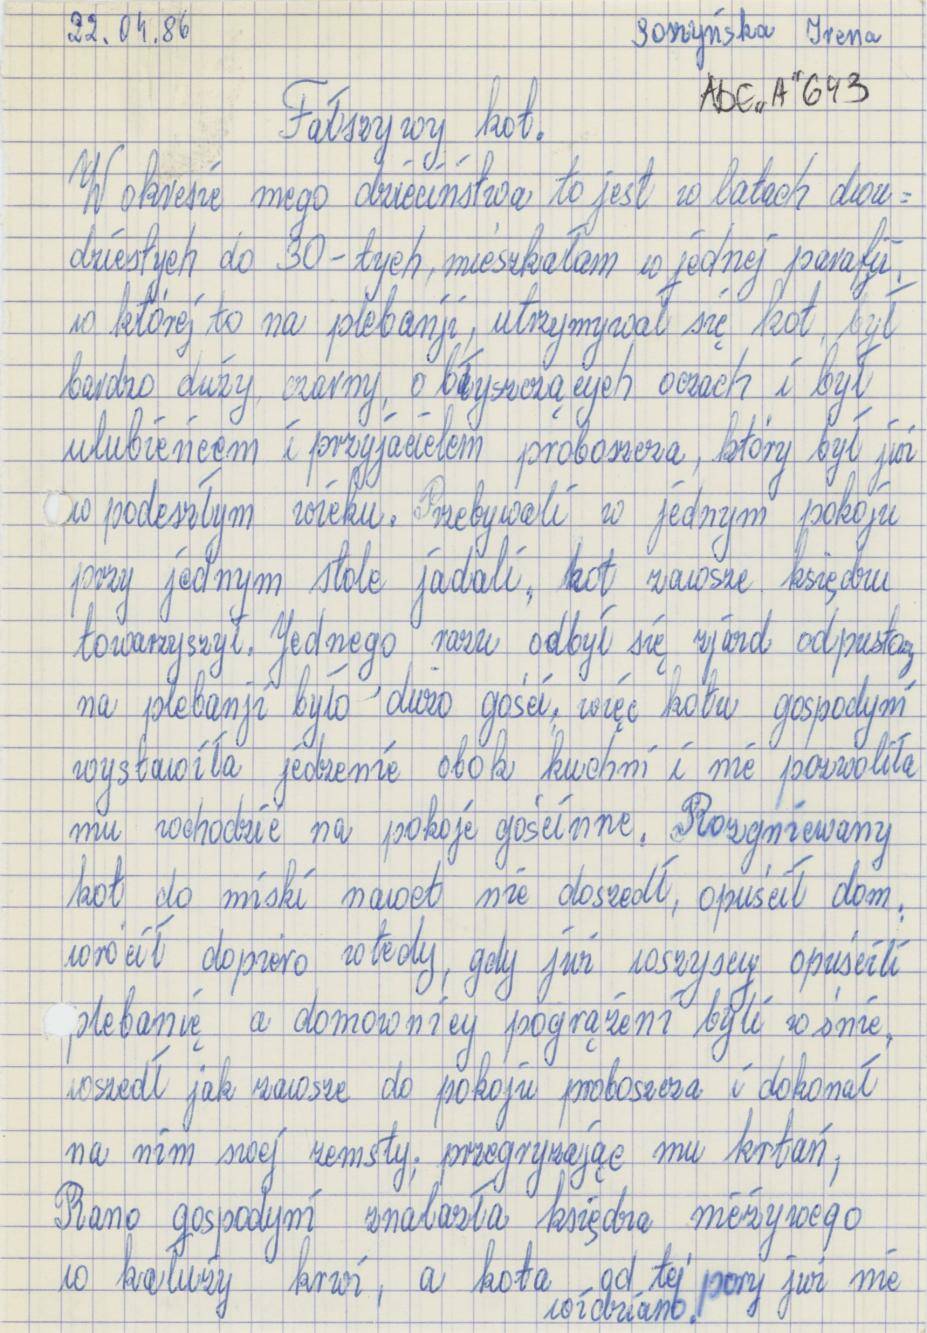 22.04.86 Goszyńska Irena
AbC„A"643
Fałszywy kot.
W okresie mego dzieciństwa to jest w latach dwu=
dziestych do 30-tych, mieszkałam w jednej parafji,
w której to na plebanji, utrzymywał się kot, był
bardzo duży, czarny, o błyszczących oczach i był
ulubieńcem i przyjacielem proboszcza, który był już
w podeszłym wieku. Przebywali w jednym pokoju
przy jednym stole jadali, kot zawsze księdzu
towarzyszył. Jednego razu odbył się zjazd odpustowy
na plebanji było dużo gości, więc kotu gospodyni
wystawiła jedzenie obok kuchni i nie pozwoliła
mu wchodzić na pokoje gościnne. Rozgniewany
kot do miski nawet nie doszedł, opuścił dom,
wrócił dopiero wtedy, gdy już wszyscy opuścili
plebanię a domownicy pogrążeni byli w śnie,
wszedł jak zawsze do pokoju proboszcza i dokonał
na nim swej zemsty, przegryzając mu krtań,
Rano gospodyni znalazła księdza nieżywego
w kałuży krwi, a kota od tej pory już nie
widziano.